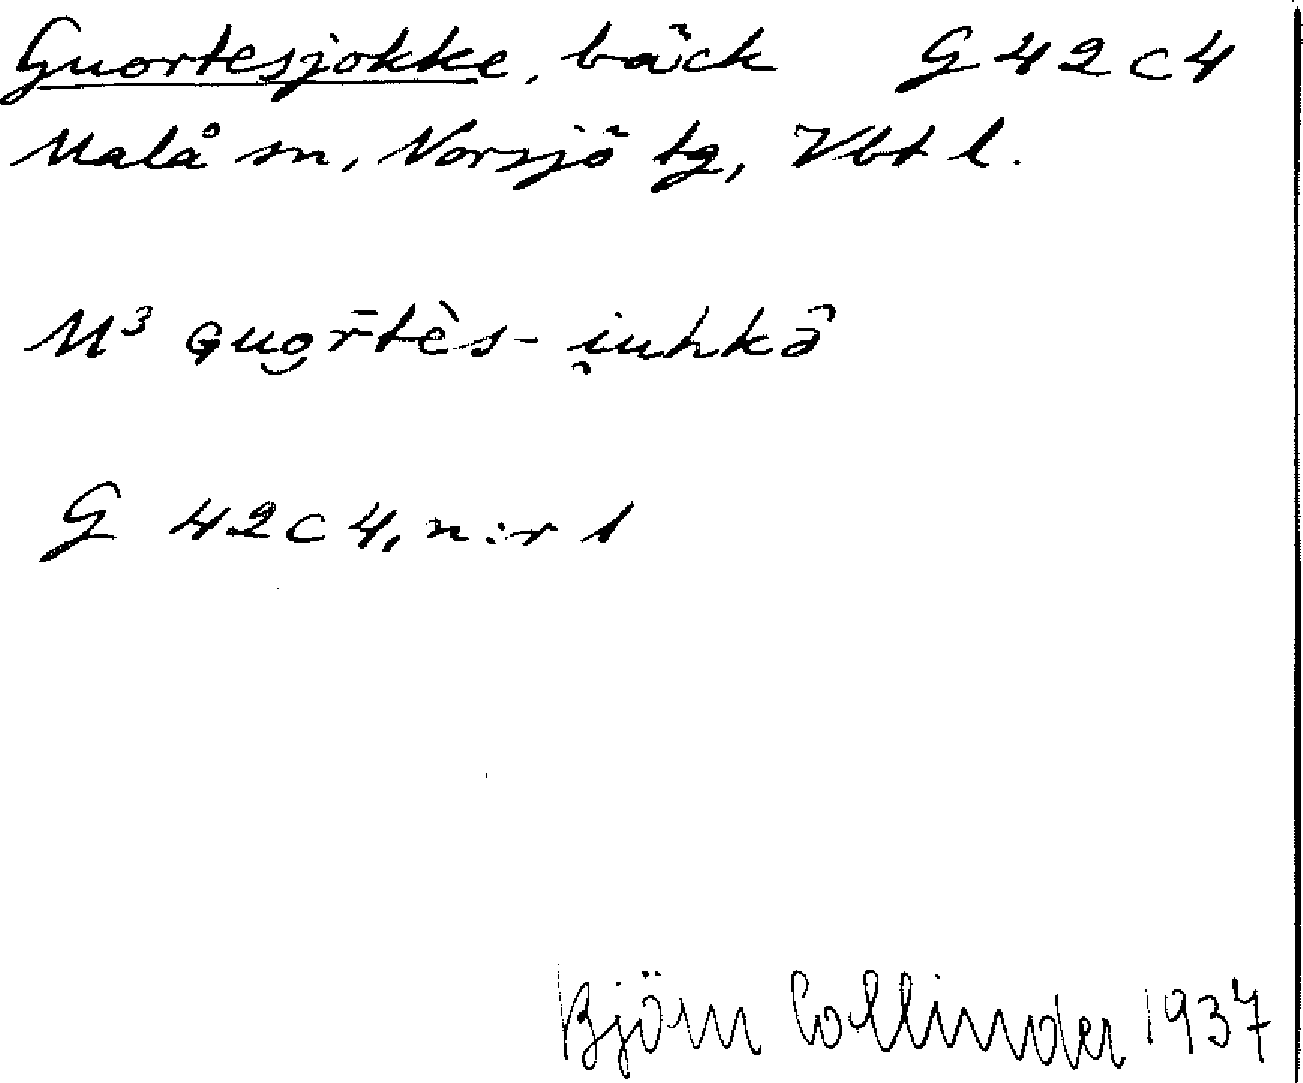 Guortesjokke, bäck G 42 c 4
Malå sn, Norsjö tg, Vbt l.
M³ GUo̮r̄tès- i̯uhkə̂
G 42 c 4, n:r 1
Björn Collinder 1937